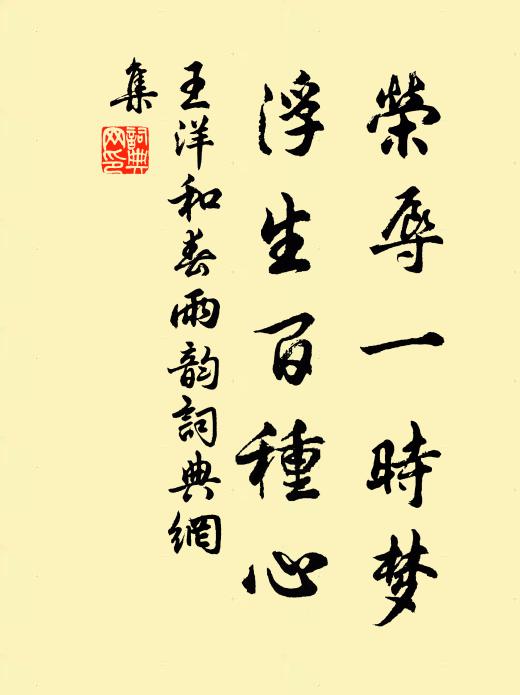 榮辱一時梦
浮生百種心
王洋和春雨韵詞典網
集
詞典
网印